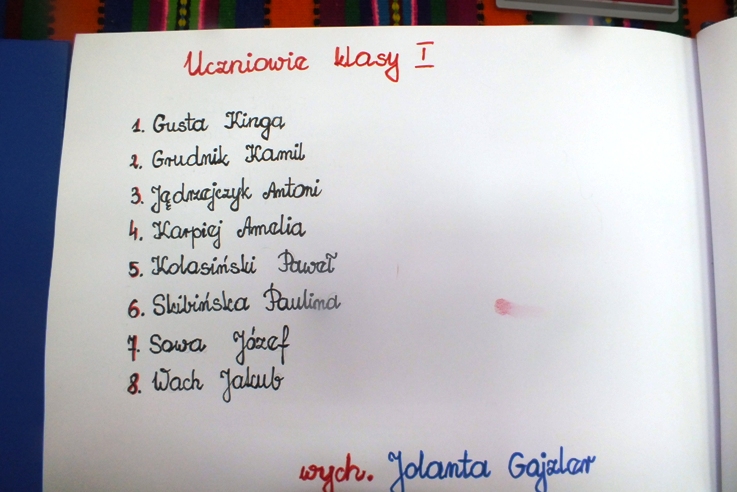 Uczniowie klasy I
1. Gusta Kinga
2. Grudnik Kamil
3. Jędrzejczyk Antoni
4. Karpiej Amelia
5. Kolasiński Paweł
6. Skibińska Paulina
7. Sowa Józef
8. Wach Jakub
wych. Jolanta Gajzler